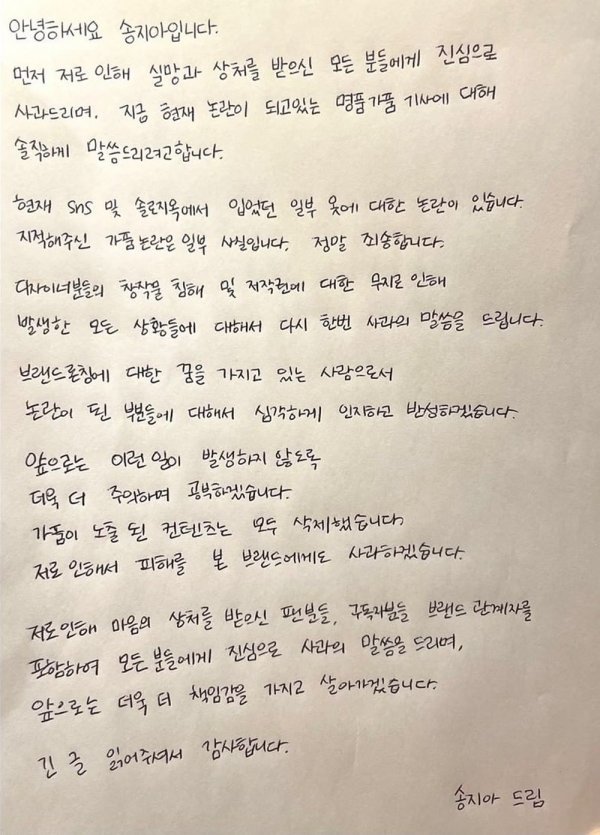 안녕하세요 송지아입니다.
먼저 저로 인해 실망과 상처를 받으신 모든 분들에게 진심으로
사과드리며, 지금 현재 논란이 되고있는 명품가품 기사에 대해
솔직하게 말씀드리려고합니다.
현재 sns 및 솔로지옥에서 입었던 일부 옷에 대한 논란이 있습니다.
지적해주신 가품논란은 일부 사실입니다. 정말 죄송합니다.
디자이너분들의 창작물 침해 및 저작권에 대한 무지로 인해
발생한 모든 상황들에 대해서 다시 한번 사과의 말씀을 드립니다.
브랜드론칭에 대한 꿈을 가지고 있는 사람으로서
논란이 된 부분들에 대해서 심각하게 인지하고 반성하겠습니다.
앞으로는 이런 일이 발생하지 않도록
더욱 더 주의하며 공부하겠습니다.
가품이 노출 된 컨텐츠는 모두 삭제했습니다.
저로 인해서 피해를 본 브랜드에게도 사과하겠습니다.
저로인해 마음의 상처를 받으신 팬분들, 구독자분들 브랜드 관계자를
포함하여 모든분들에게 진심으로 사과의 말씀을 드리며,
앞으로는 더욱 더 책임감을 가지고 살아가겠습니다.
긴 글 읽어주셔서 감사합니다.
송지아 드림